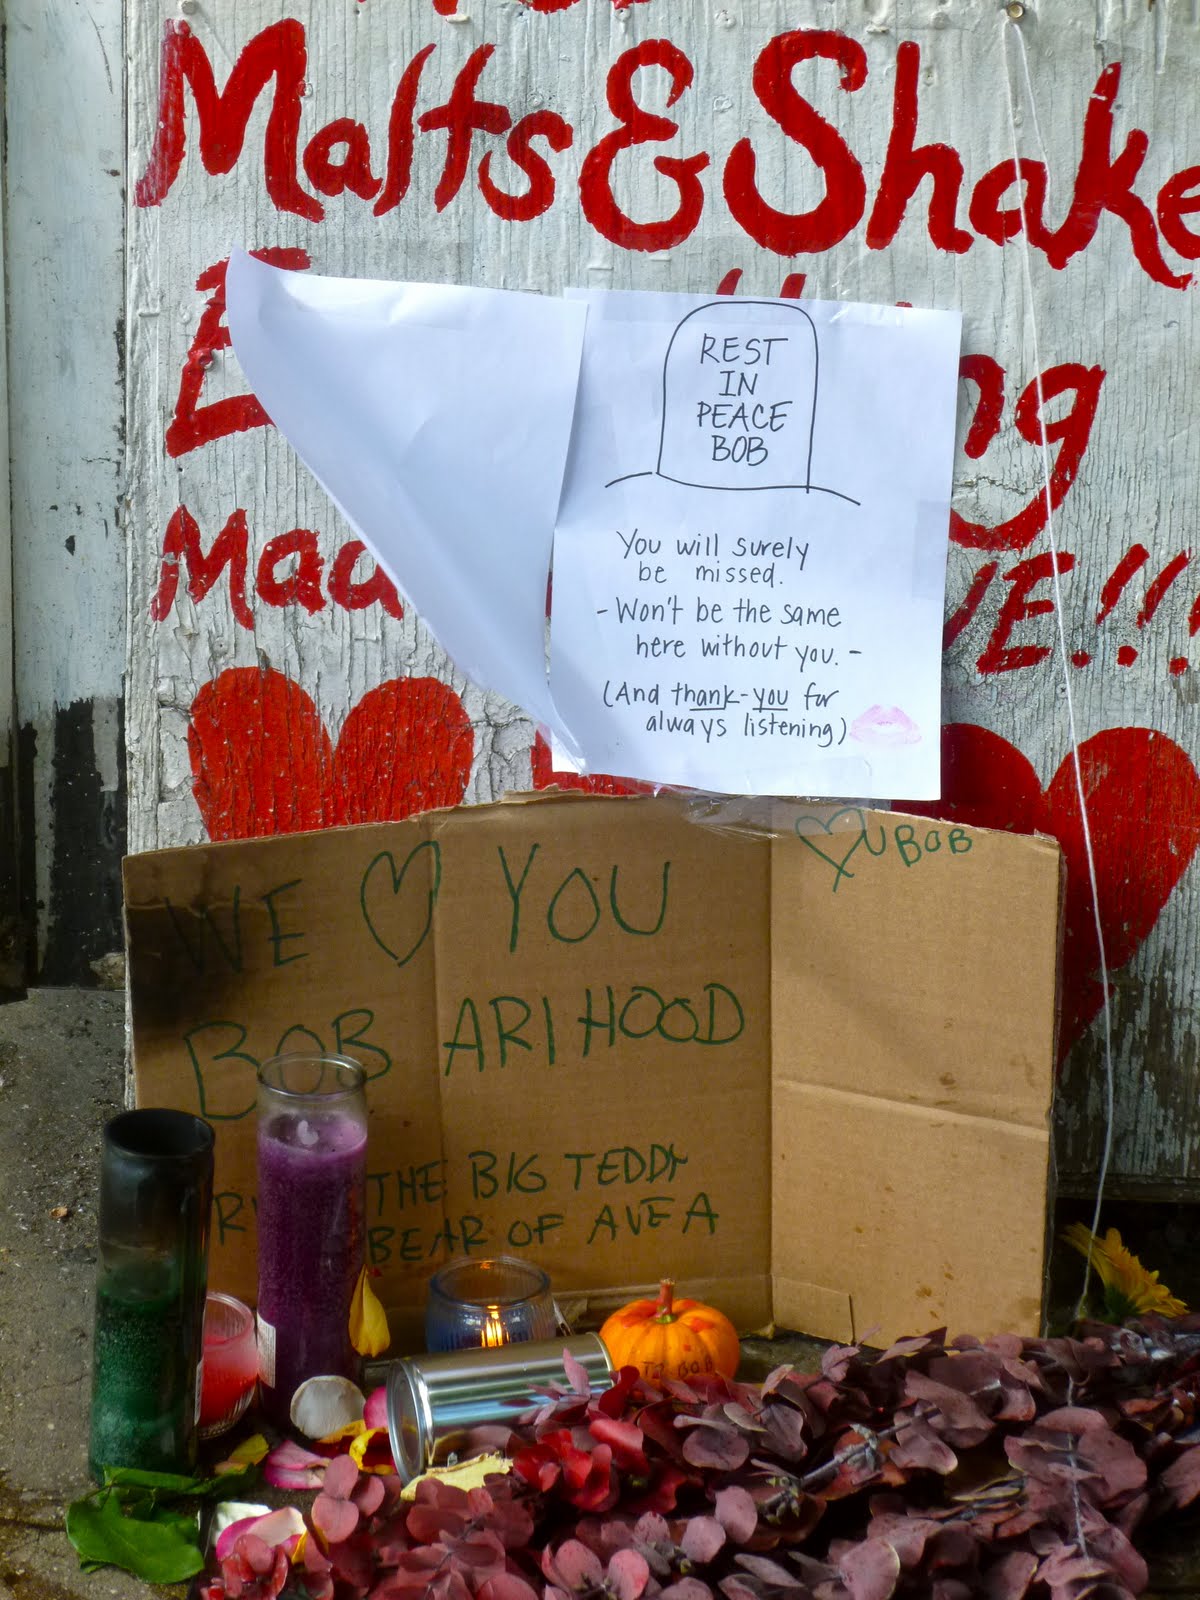 Malts & Shake
REST
IN
PEACE
BOB
You will surely
be missed.
- Won't be the same
here without you. -
(And thank-you for
always listening)
U BOB
WE YOU
BOB ARIHOOD
THE BIG TEDDY
BEAR OF AVE A
TO BOB